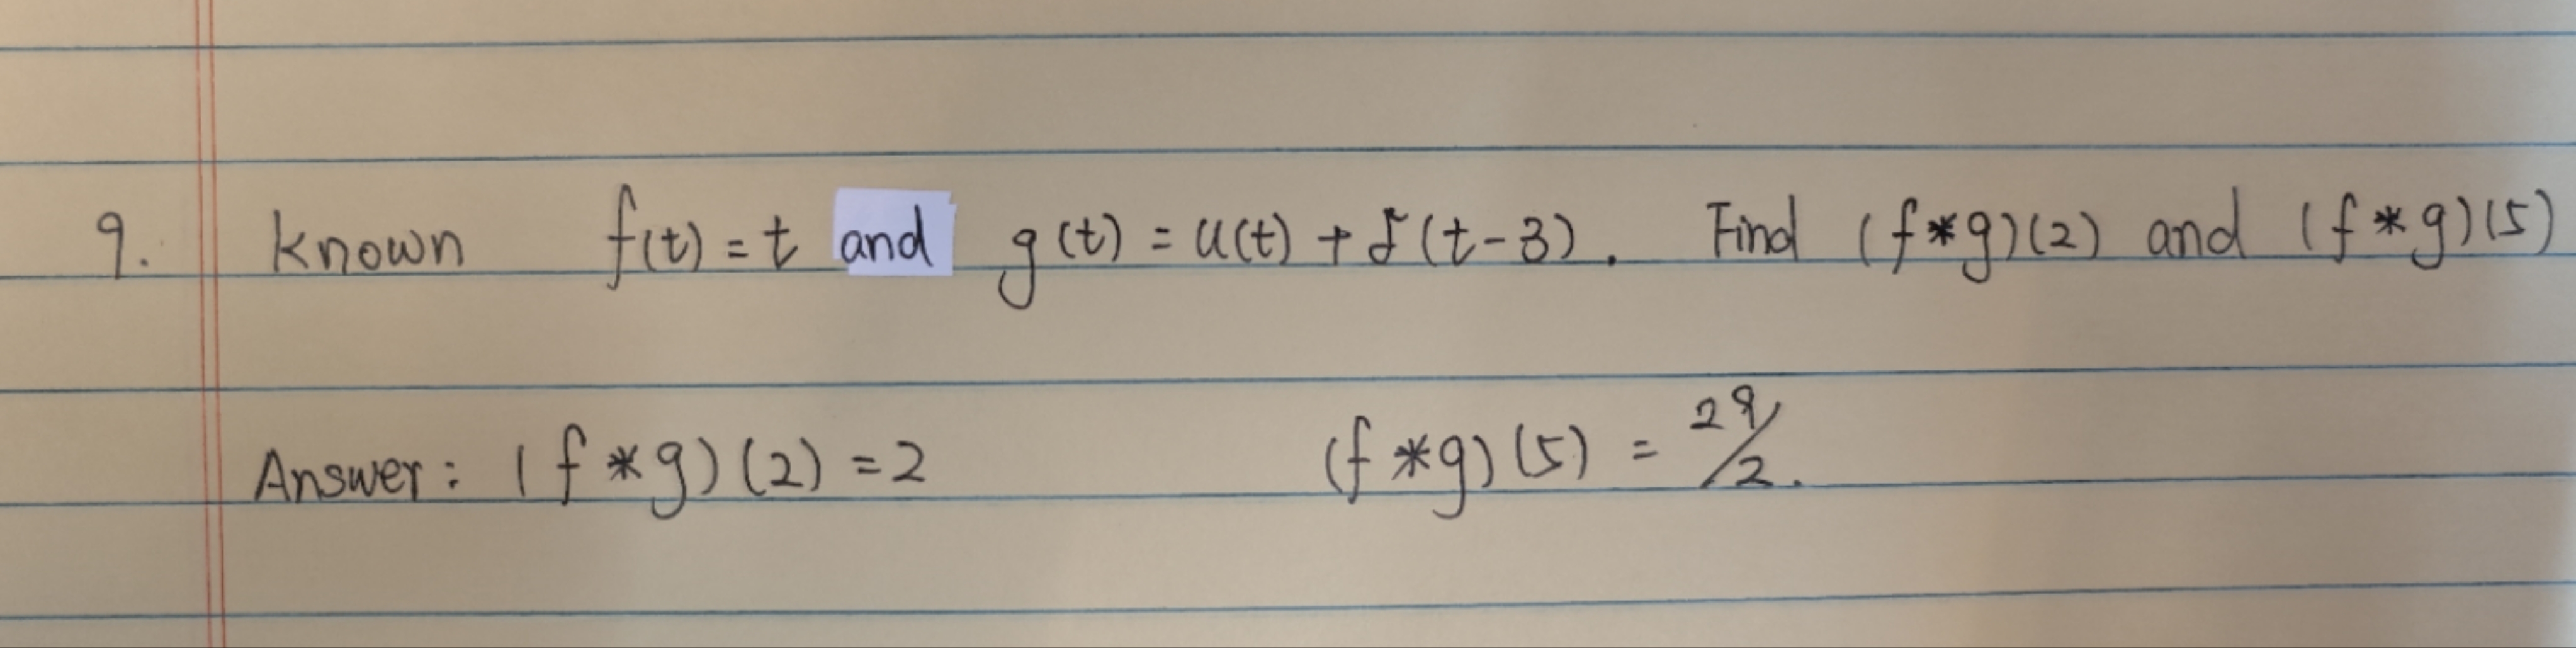 9. Known f(t) = t and g(t) = u(t) + δ(t-3). Find (f*g)(2) and (f*g)(5)
Answer: (f*g)(2) = 2 (f*g)(5) = 29/2.